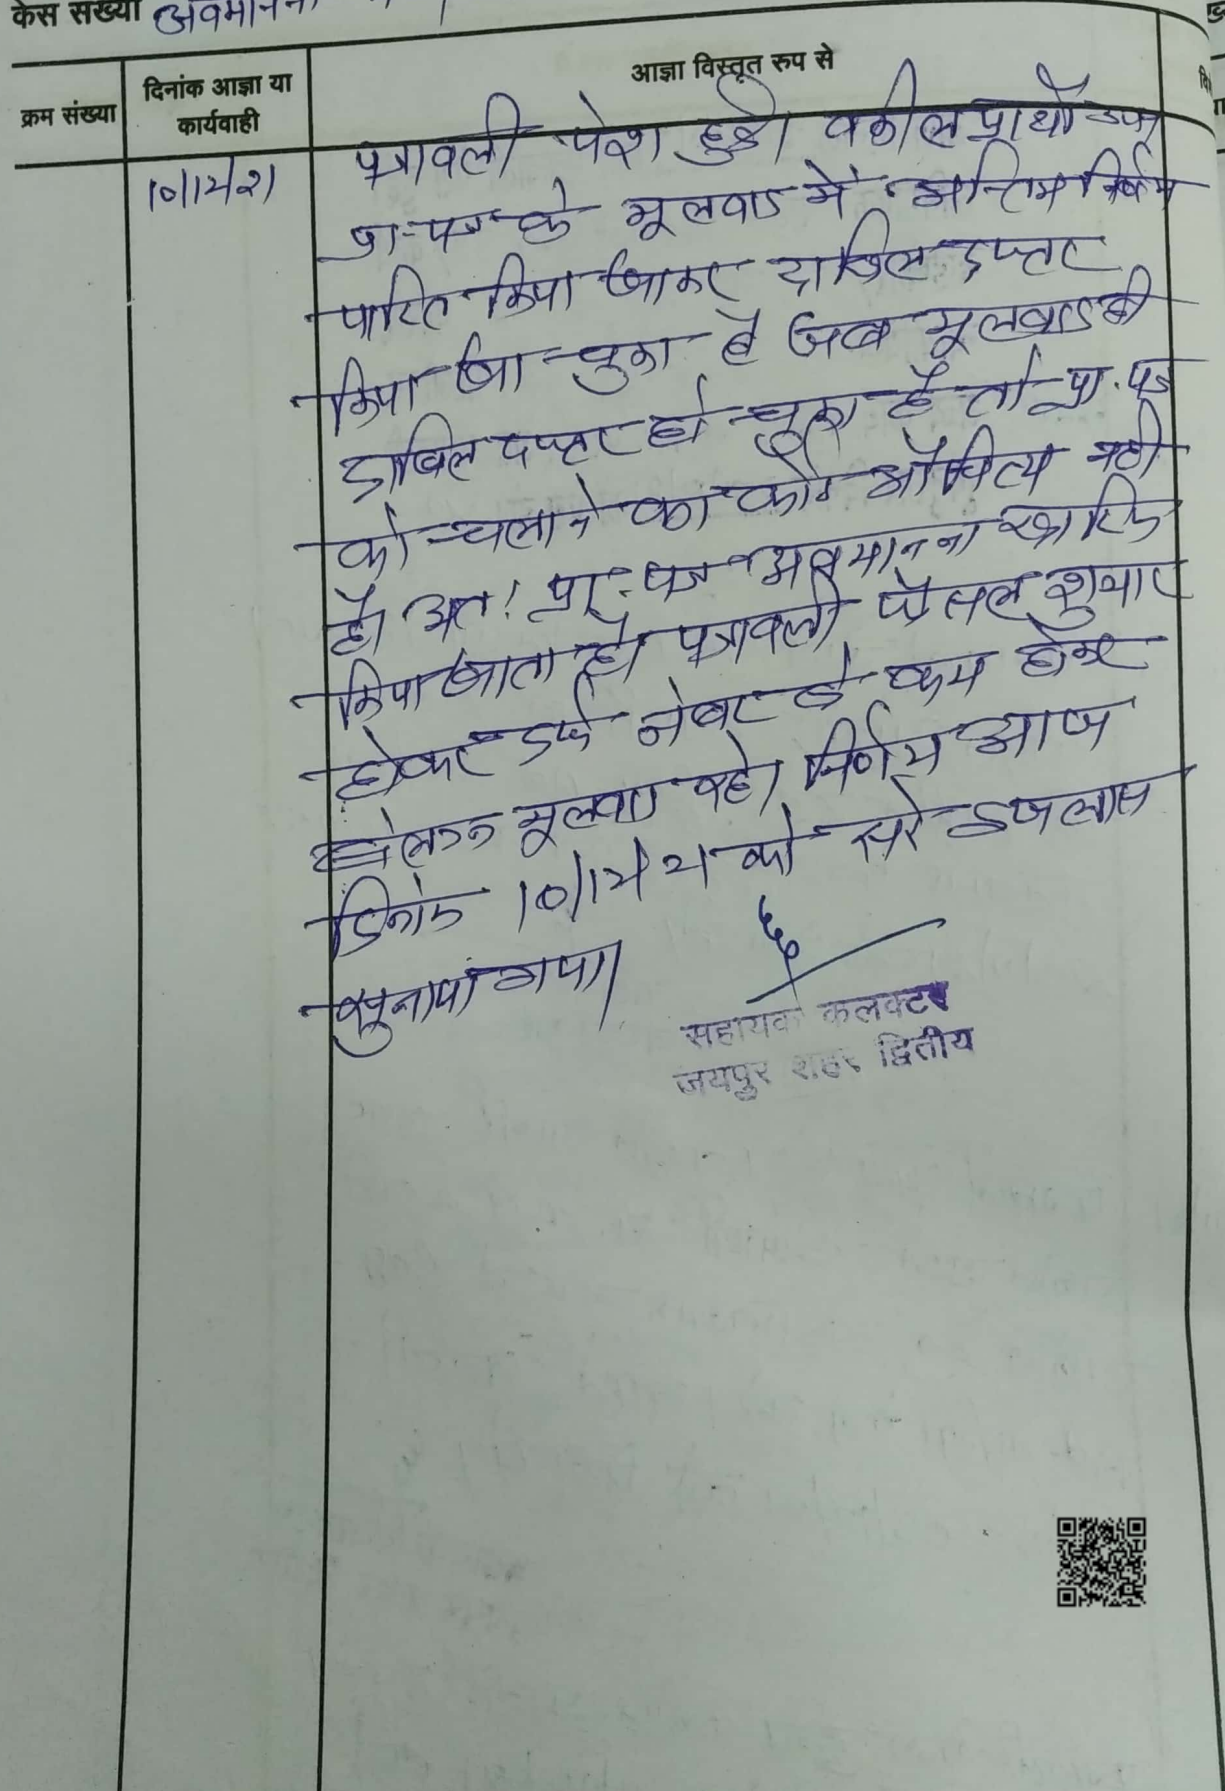 केस संख्या अवमानना
क्रम संख्या
दिनांक आज्ञा या
कार्यवाही
आज्ञा विस्तृत रुप से
10/12/21
पत्रावली पेश हुई। वकील प्रार्थी उप०
प्रा. पत्र के मूलवाद में अन्तिम निर्णय
पारित किया जाकर दाखिल दफ्तर
किया जा चुका है जब मूलवाद ही
दाखिल दफ्तर हो चुका है तो प्रा. पत्र
को चलाने का कोई औचित्य नही
है। अतः प्रा. पत्र अवमानना खारिज
किया जाता है। पत्रावली फैसल शुमार
होकर दर्ज नंबर से कम होकर
संलग्न मूलवाद रहे। निर्णय आज
दिनांक 10/12/21 को सरे इजलास
सुनाया गया।
सहायक कलक्टर
जयपुर शहर द्वितीय